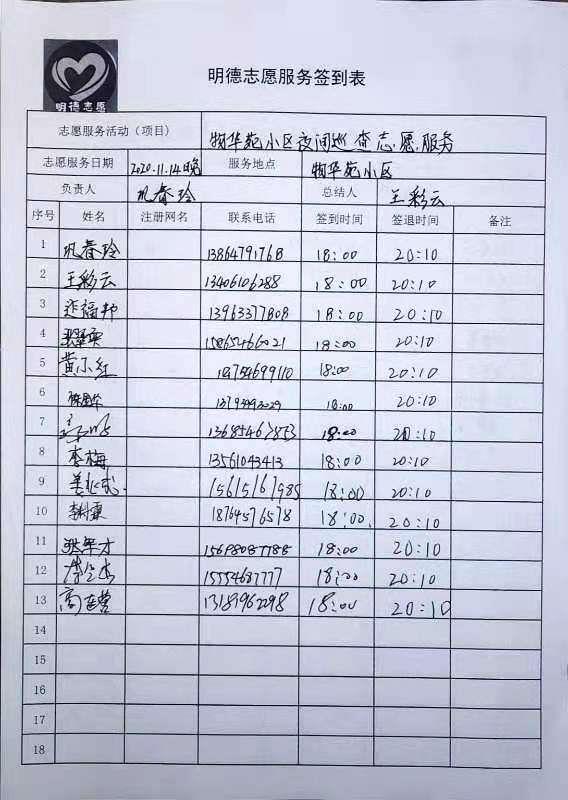 明德志愿
明德志愿服务签到表
志愿服务活动（项目） 物华苑小区夜间巡查志愿服务
志愿服务日期 2020.11.14晚 服务地点 物华苑小区
负责人 巩春玲 总结人 王彩云
序号 姓名 注册网名 联系电话 签到时间 签退时间 备注
1 巩春玲 13864791768 18:00 20:10
2 王彩云 13406106288 18:00 20:10
3 13963377808 18:00 20:10
4 15865466021 18:00 20:10
5 黄小红 18:00 20:10
6 18:00 20:10
7 18:00 20:10
8 李梅 13561043413 18:00 20:10
9 15615167985 18:00 20:10
10 18764576578 18:00. 20:10
11 张军才 15698087788 18:00 20:10
12 15554687777 18:00 20:10
13 13181962298 18:00 20:10
14
15
16
17
18